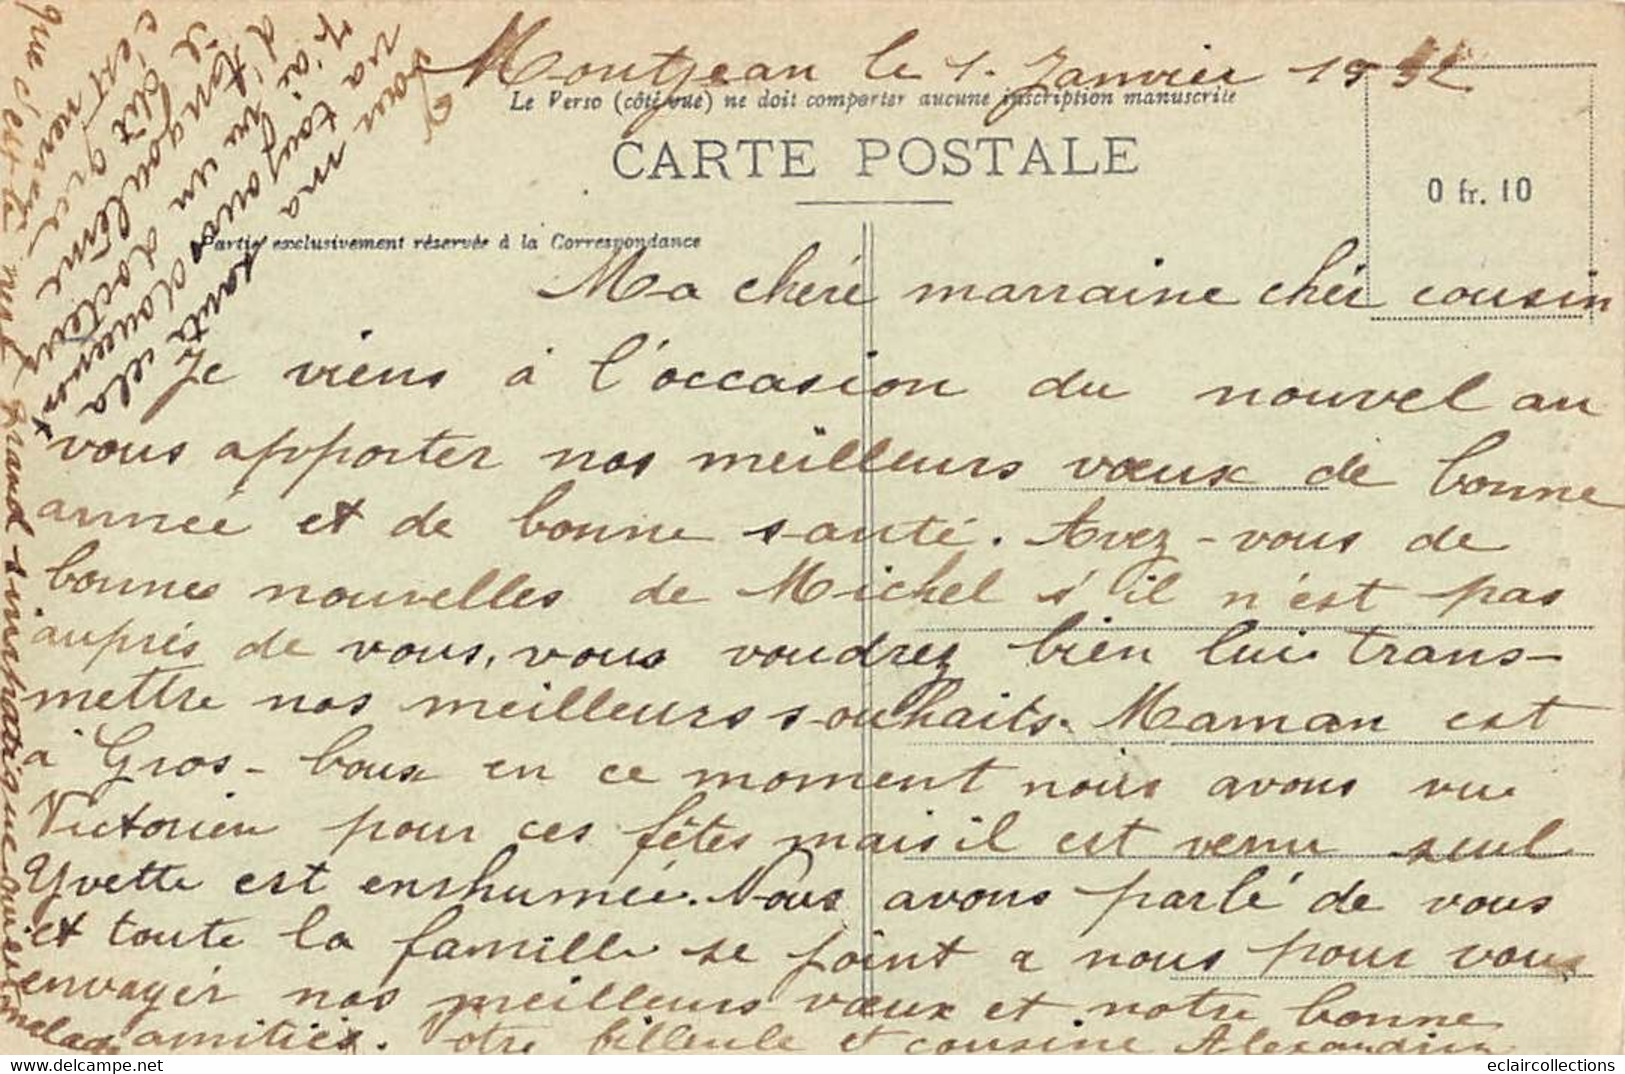 Montjean le 1. Janvier 19
Le Verso (côté vue) ne doit comporter aucune inscription manuscrite
CARTE POSTALE
0 fr. 10
Partie exclusivement réservée à la Correspondance
Ma chéré marraine chér cousin
Je viens à l'occasion du nouvel an
vous apporter nos meilleurs vœux de bonne
année et de bonne santé. Avez-vous de
bonnes nouvelles de Michel s'il n'est pas
auprés de vous, vous voudrez bien lui trans-
mettre nos meilleurs souhaits. Maman est
à Gros-boux en ce moment nous avons vu
Victorien pour ces fêtes mais il est venu seul
Yvette est enrhumée. Nous avons parlé de vous
et toute la famille se joint a nous pour vous
envoyér nos meilleurs vœux et notre bonne
amitiés. Votre filleule et cousine Alexandrine
Pour ma santé ela
va toujours doucement
J'ai vu un docteur
d'Angoulême
il dit que
c'est nerveux
que c'est le nerf grand simphatique qui est malade
eclaircollections